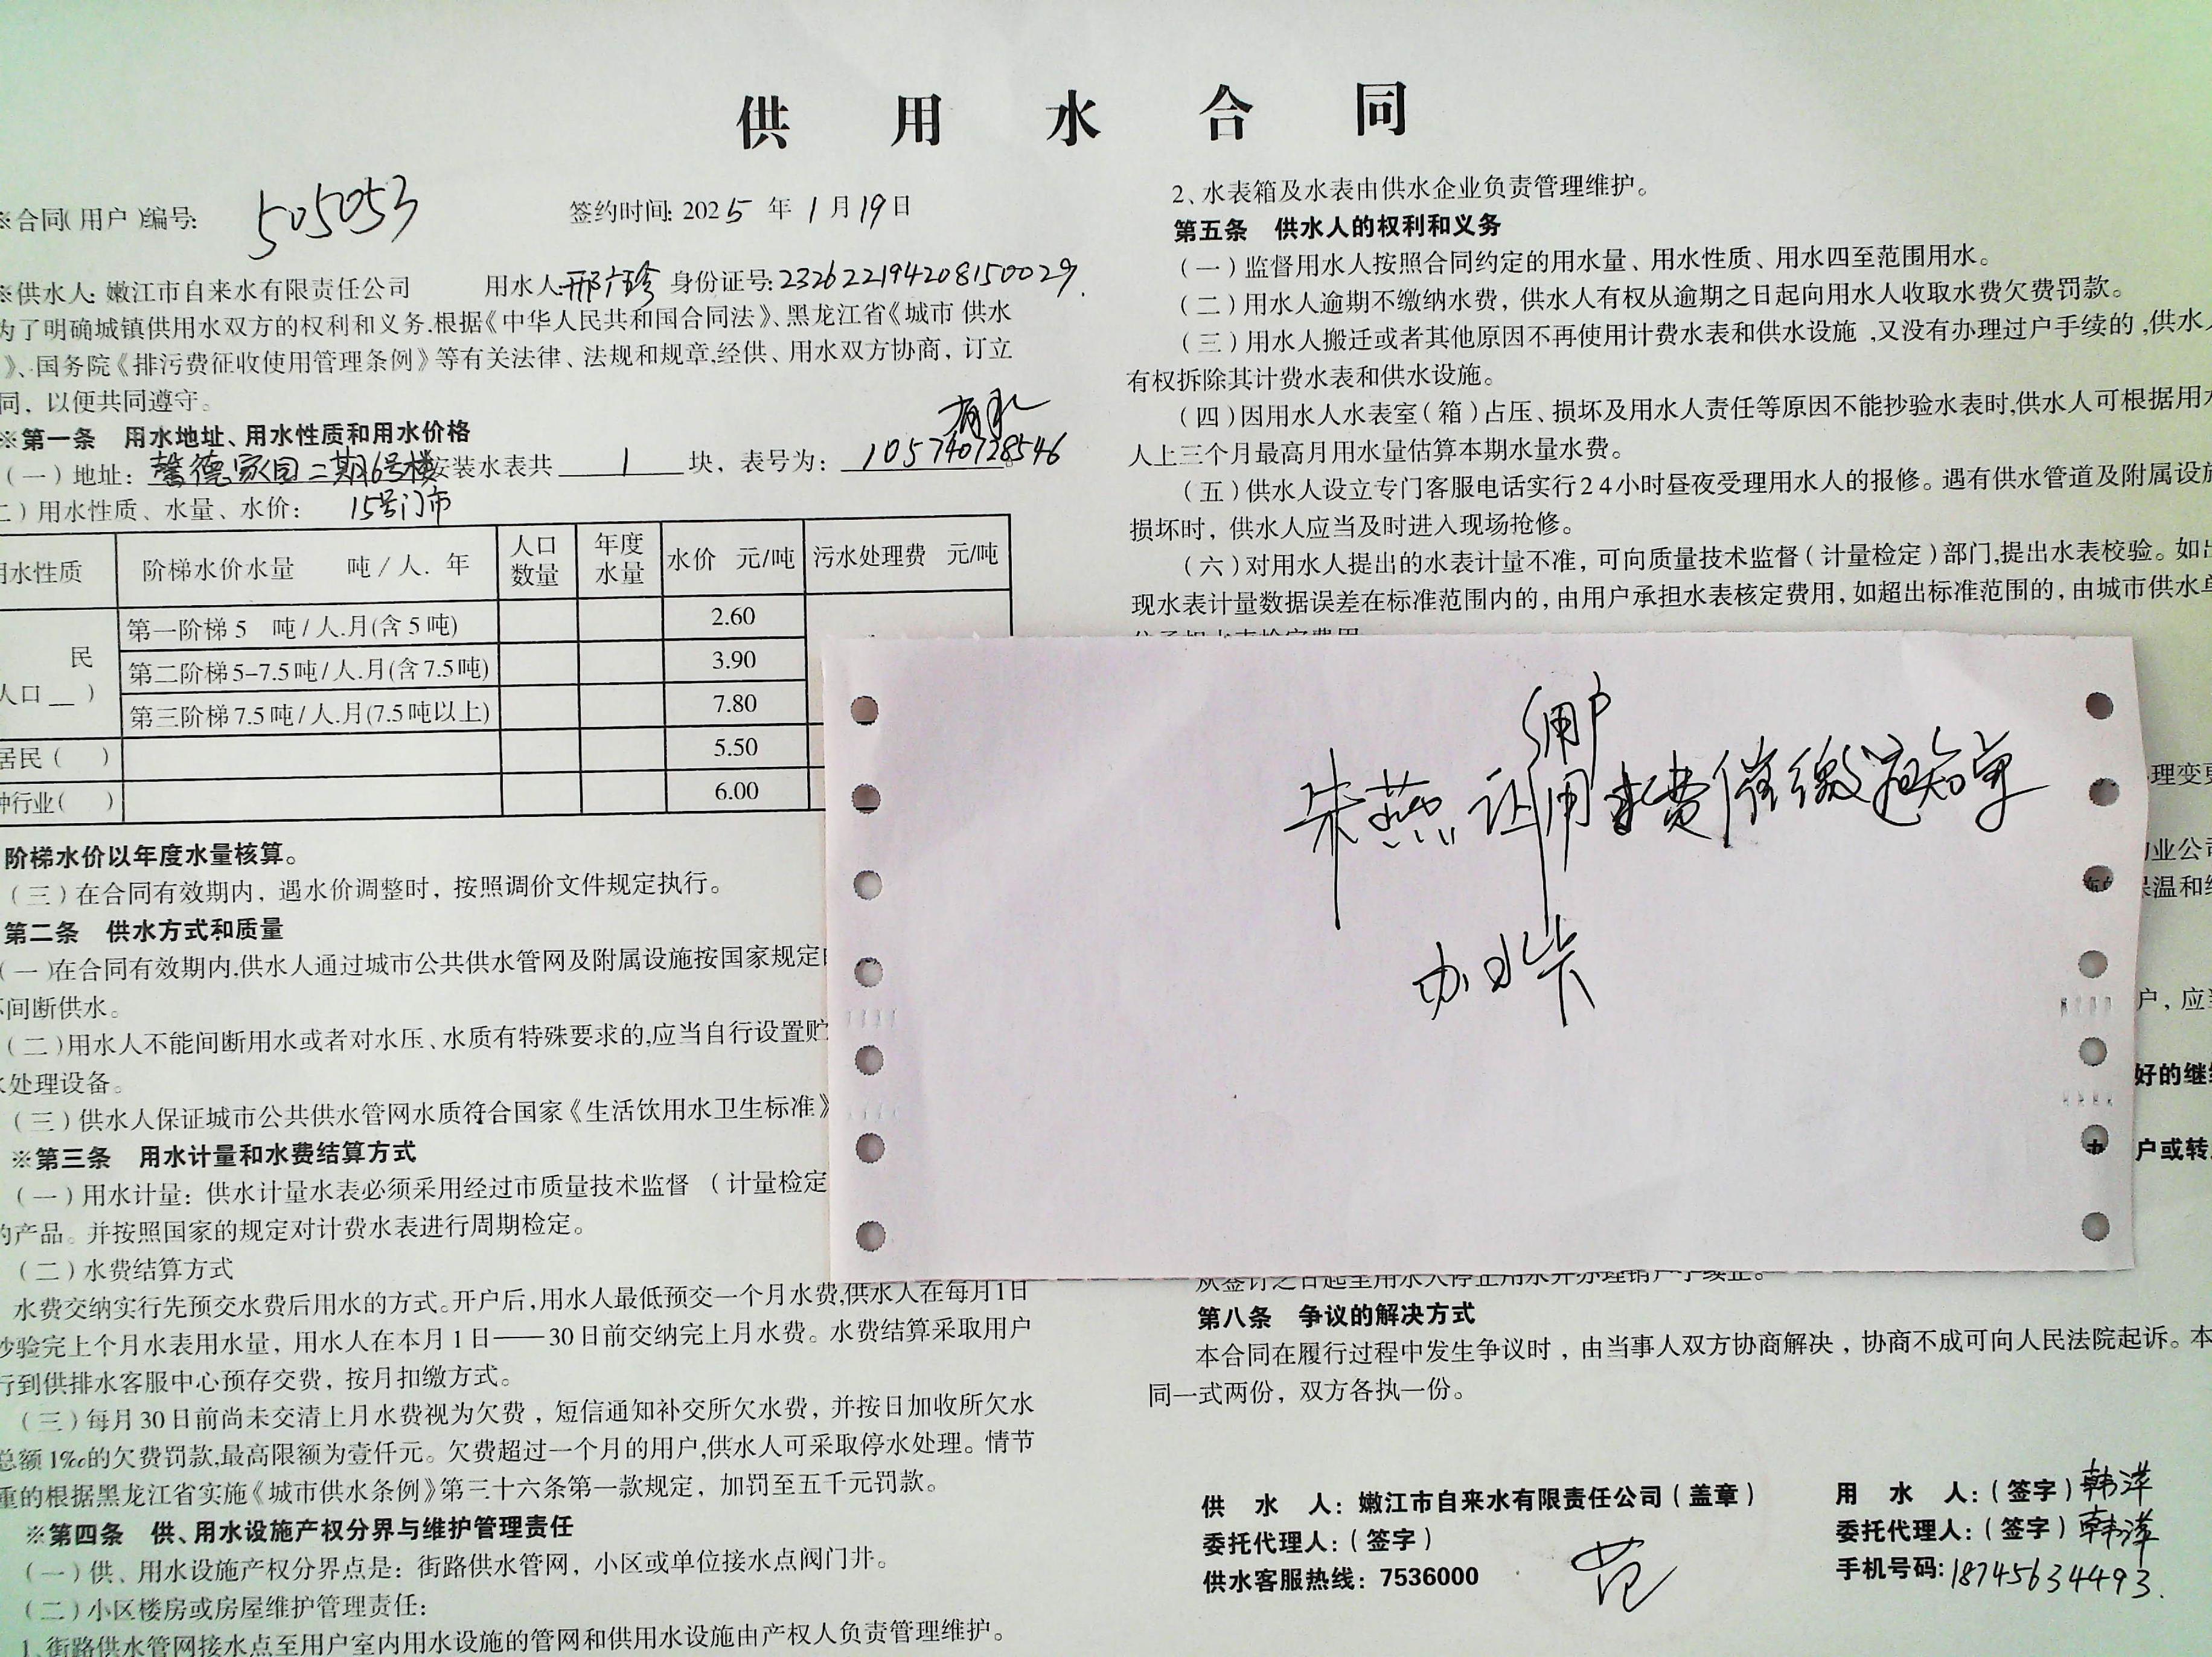 供 用 水 合 同
※合同(用户)编号: 505053 签约时间: 2025 年 1 月 19 日
※供水人: 嫩江市自来水有限责任公司 用水人: 邢广珍 身份证号: 232622194208150029.
为了明确城镇供用水双方的权利和义务.根据《中华人民共和国合同法》、黑龙江省《城市 供水
》、国务院《排污费征收使用管理条例》等有关法律、法规和规章,经供、用水双方协商, 订立
同, 以便共同遵守。
※第一条 用水地址、用水性质和用水价格
(一)地址: 馨德家园二期6号楼 安装水表共 1 块, 表号为: 105740728546
15号门市
二)用水性质、水量、水价:
用水性质 阶梯水价水量 吨/人. 年 人口数量 年度水量 水价 元/吨 污水处理费 元/吨
民
人口__ )
第一阶梯 5 吨/人.月(含5吨) 2.60
第二阶梯5-7.5吨/人.月(含7.5吨) 3.90
第三阶梯7.5吨/人.月(7.5吨以上) 7.80
居民( ) 5.50
种行业( ) 6.00
阶梯水价以年度水量核算。
(三)在合同有效期内, 遇水价调整时, 按照调价文件规定执行。
第二条 供水方式和质量
(一)在合同有效期内.供水人通过城市公共供水管网及附属设施按国家规定
不间断供水。
(二)用水人不能间断用水或者对水压、水质有特殊要求的,应当自行设置贮
水处理设备。
(三)供水人保证城市公共供水管网水质符合国家《生活饮用水卫生标准》
※第三条 用水计量和水费结算方式
(一)用水计量: 供水计量水表必须采用经过市质量技术监督 (计量检定
的产品。并按照国家的规定对计费水表进行周期检定。
(二)水费结算方式
水费交纳实行先预交水费后用水的方式。开户后,用水人最低预交一个月水费,供水人在每月1日
抄验完上个月水表用水量, 用水人在本月1日——30日前交纳完上月水费。水费结算采取用户
行到供排水客服中心预存交费, 按月扣缴方式。
(三)每月30日前尚未交清上月水费视为欠费, 短信通知补交所欠水费, 并按日加收所欠水
总额1‰的欠费罚款,最高限额为壹仟元。欠费超过一个月的用户,供水人可采取停水处理。情节
重的根据黑龙江省实施《城市供水条例》第三十六条第一款规定, 加罚至五千元罚款。
※第四条 供、用水设施产权分界与维护管理责任
(一)供、用水设施产权分界点是: 街路供水管网, 小区或单位接水点阀门井。
(二)小区楼房或房屋维护管理责任:
1.街路供水管网接水点至用户室内用水设施的管网和供用水设施由产权人负责管理维护。
2、水表箱及水表由供水企业负责管理维护。
第五条 供水人的权利和义务
(一)监督用水人按照合同约定的用水量、用水性质、用水四至范围用水。
(二)用水人逾期不缴纳水费, 供水人有权从逾期之日起向用水人收取水费欠费罚款。
(三)用水人搬迁或者其他原因不再使用计费水表和供水设施,又没有办理过户手续的,供水人
有权拆除其计费水表和供水设施。
(四)因用水人水表室(箱)占压、损坏及用水人责任等原因不能抄验水表时,供水人可根据用水
人上三个月最高月用水量估算本期水量水费。
(五)供水人设立专门客服电话实行24小时昼夜受理用水人的报修。遇有供水管道及附属设施
损坏时, 供水人应当及时进入现场抢修。
(六)对用水人提出的水表计量不准, 可向质量技术监督(计量检定)部门,提出水表校验。如出
现水表计量数据误差在标准范围内的, 由用户承担水表核定费用, 如超出标准范围的, 由城市供水单
用户
朱燕 让用水费催缴通知单
办水卡
理变更
业公司
保温和
户, 应当
好的继续
户或转
从签订之日起至用水人停止用水并办理销户手续止。
第八条 争议的解决方式
本合同在履行过程中发生争议时, 由当事人双方协商解决, 协商不成可向人民法院起诉。本
同一式两份, 双方各执一份。
供 水 人: 嫩江市自来水有限责任公司(盖章)
委托代理人:(签字)
供水客服热线: 7536000
用 水 人:(签字) 韩萍
委托代理人:(签字) 韩萍
手机号码: 18745634493.